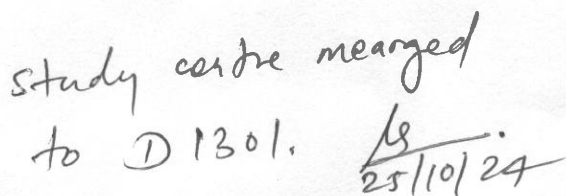 study centre mearged
to D1301.
25/10/24